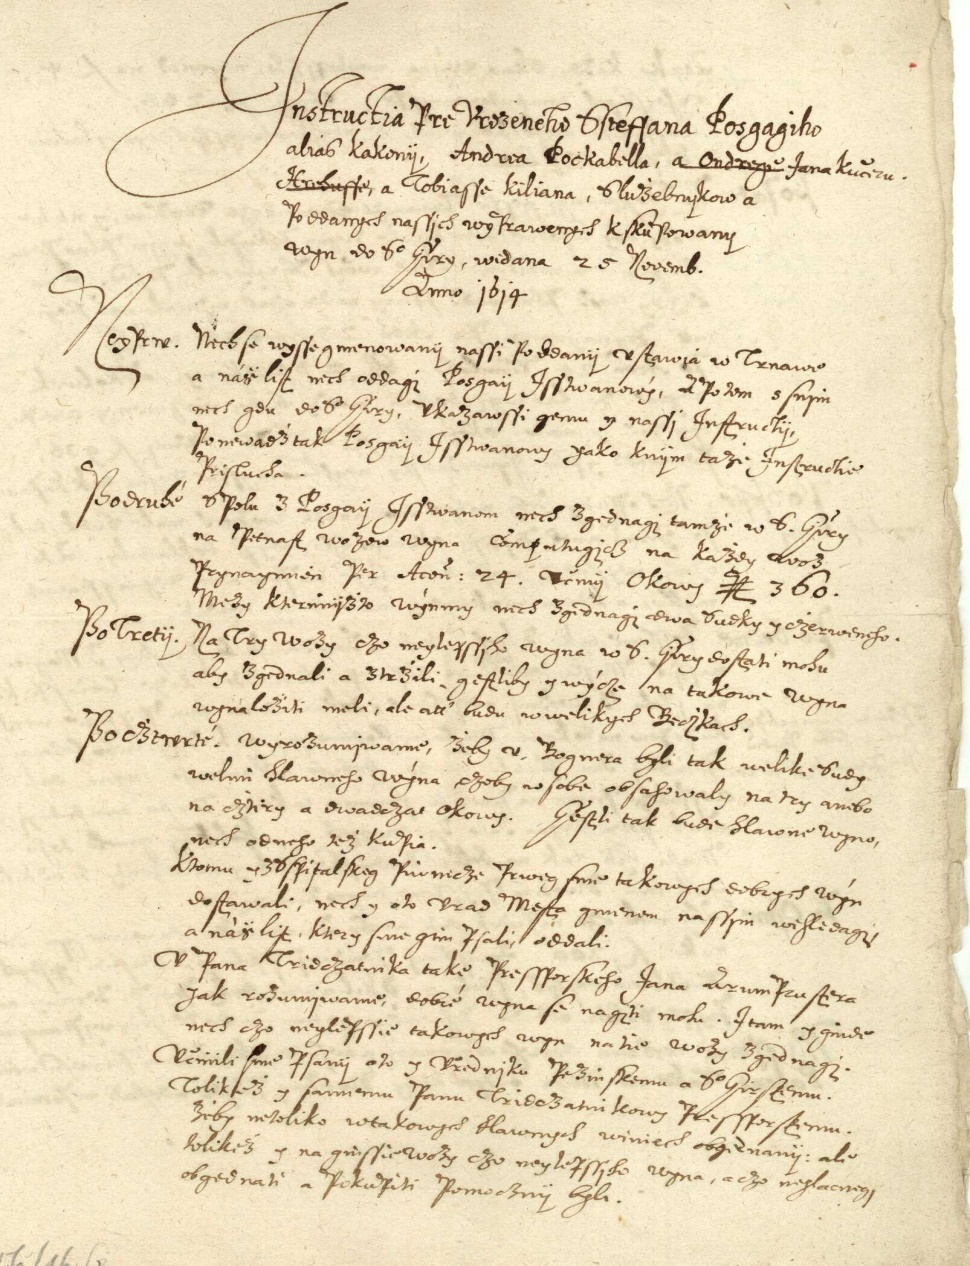 Instructia Pre Urozeneho Ssteffana Posgagiho
alias Kakonij, Andrea Kockabella, a Ondrege Jana Kučeru.
a Tobiasse Kiliana, Služebnykow a
Poddanych nassych wyprawenych k skupowany
wyn do So Gyry, widana 25 Novemb.
Anno 1614
Neyprw. Nech se wysse gmenowanij nassi Poddanij ustawia w Trnawe
a náss list nech oddagi Posgaij Isstwanowy, A Potom s nym
nech gdu do So Gyry, Ukazawssi gemu y nassy Instructij,
Ponewadž tak Posgaij Isstwanowy yako knym taže Instructie
Prislucha.
Podruhé Spolu z Posgaij Isstwanom nech zgednagi tamže w S. Gyry
na Petnast wozow wyna computugicz na každy woz
Pregnaymen Per Acou: 24. Učinij Okowy # 360.
Mezy kterimižto wynmy nech zgednagi dwa sudky y czerweneho.
Potretij. Na Try Wozy czo neylepssyho wyna w S. Gyry dostati mohu
aby zgednali a ztržili, gestliby y wycze na takowe wyna
wynaložiti meli, ale ať budu w welikych Beczkach.
Po cztwrté. wyrozumijwame, žeby u Bognera byli tak welike Sudy
welmi hlawneho wyna czoby w sobe obsahowaly na try anebo
na cztery a dwadczat Okowy. Gestli tak bude hlawne wyno,
nech odneho tež kupia.
Ktomu y z Sspitalskey Piwnicze Prwey sme takowych dobrych wyn
dostawali, nech y oto Urad Mesta gmenem nassym wihledagi
a náss list, ktery sme gim Psali, oddali.
U Pana Tridczatnika take Pressporskeho Jana
Jak rozumijwame, dobré wyna se nagiti mohu. I tam y ginde
nech czo neylepssie takowych wyn na tie wozy zgednagi.
Učinili sme Psanij oto y Urednijku Pezinskemu a So Girskemu.
Tolikež y samemu Panu Tridczatnikowy Pressporskemu.
žeby netoliko w takowych hlawnych winiech obgednanij: ale
tolikež y na ginssie wozy czo neylepssyho wyna, a czo neylacnegi
obgednati a Pokupiti Pomocznij byli.